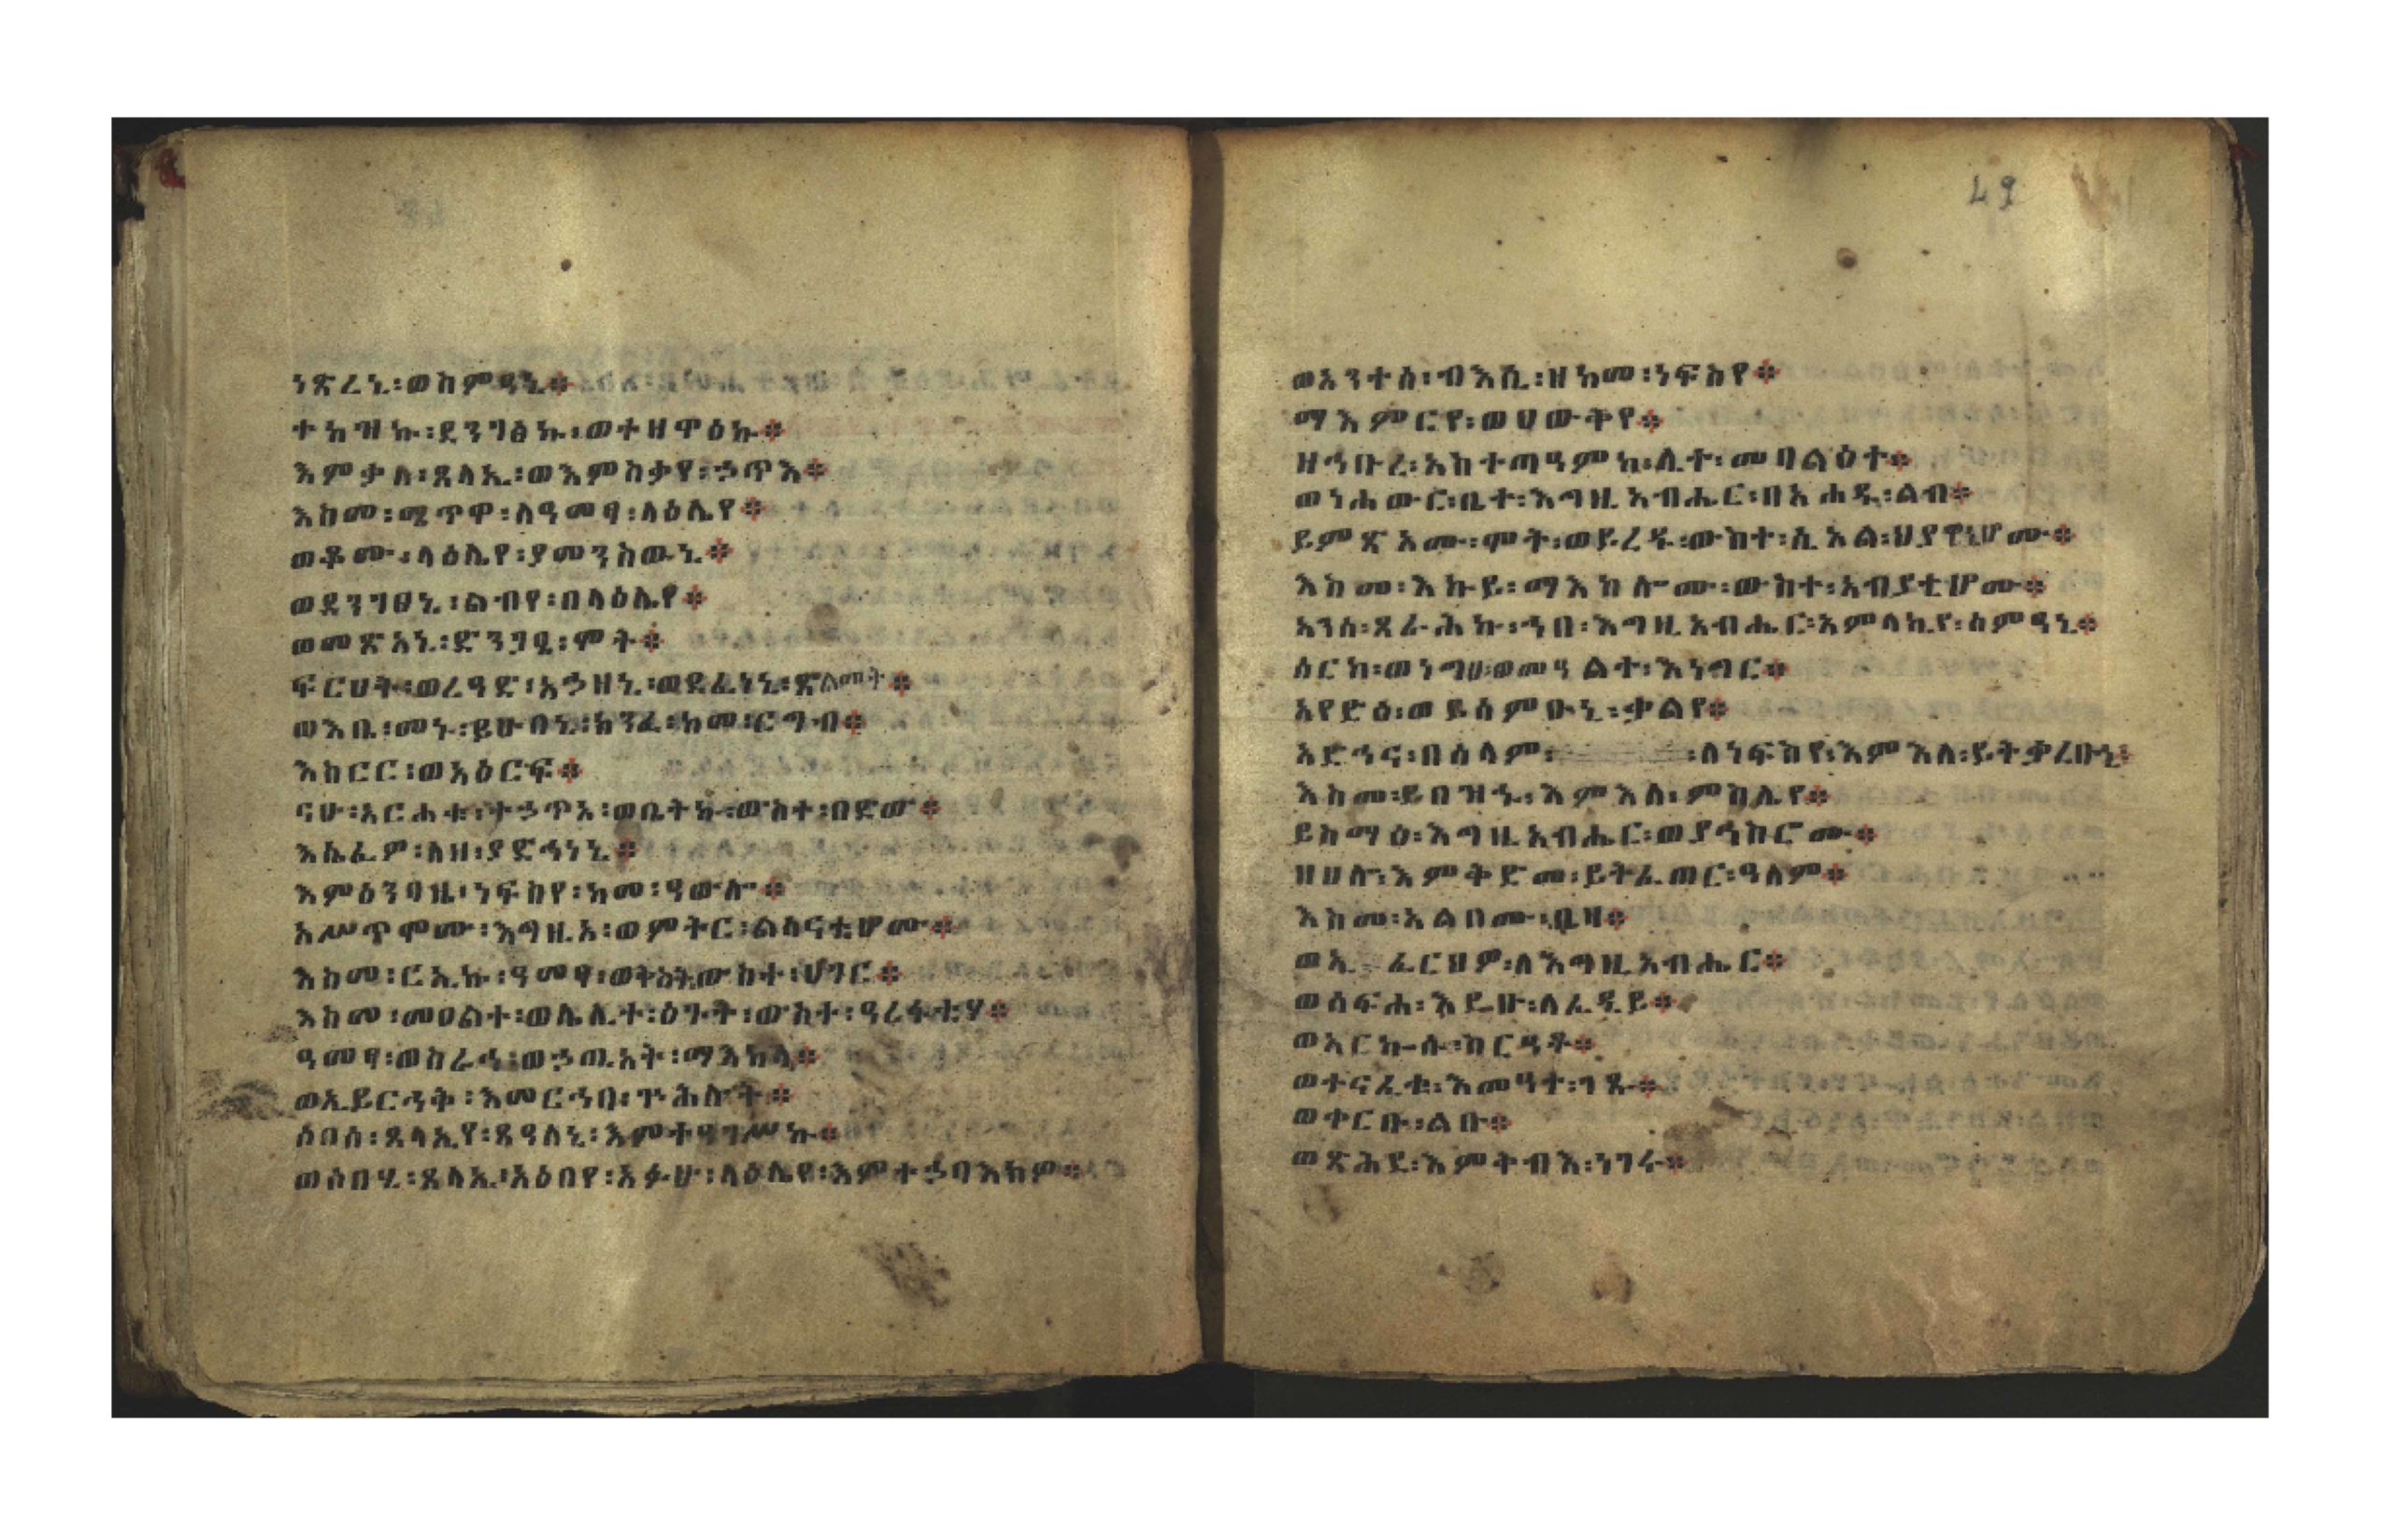 ነጽረኒ፡ወስምዓኒ፨
ተከዝኩ፡ደንገፅኩ፡ወተሀዋዕኩ፨
እምቃለ፡ጸላኢ፡ወእምስቃየ፡ኃጥእ፨
እስመ፡ሜጥዋ፡ለዓመፃ፡ላዕሌየ፨
ወቆሙ፡ላዕሌየ፡ያመንስዉኒ፨
ወደንገፀኒ፡ልብየ፡በላዕሌየ፨
ወመጽአኒ፡ድንጋፄ፡ሞት፨
ፍርሀት፡ወረዓድ፡አኃዘኒ፡ወደፈነኒ፡ጽልመት፨
ወእቤ፡መኑ፡ይሁበኒ፡ክንፈ፡ከመ፡ርግብ፨
እስርር፡ወአዕርፍ፨
ናሁ፡አርሐቁ፡ተኃጥአ፡ወቤትኩ፡ውስተ፡በድው፨
እሴፈዎ፡ለዘ፡ያድኅነኒ፨
እምዕንባዜ፡ነፍስየ፡ከመ፡ዓውሎ፨
አሥጥሞሙ፡እግዚኦ፡ወምትር፡ልሳናቲሆሙ፨
እስመ፡ርኢኩ፡ዓመፃ፡ወቅስት፡ውስተ፡ሀገር፨
እስመ፡መዐልተ፡ወሌሊተ፡ዕጉት፡ውስተ፡ዓረፋቲሃ፨
ዓመፃ፡ወስራሕ፡ወኃጢአት፡ማእከላ፨
ወኢይርኅቅ፡እመርኅባ፡ጕሕሉት፨
ሶበሰ፡ጸላኢየ፡ጸዓለኒ፡እምተዓገሥኩ፨
ወሶበሂ፡ጸላኢ፡አዕበየ፡አፉሁ፡ላዕሌየ፡እምተኃባእክዎ፨
49
ወአንተሰ፡ብእሲ፡ዘከመ፡ነፍስየ፨
ማእምርየ፡ወህውቅየ፨
ዘኅቡረ፡አስተጣዓምከ፡ሊተ፡መባልዕተ፨
ወነሐውር፡ቤተ፡እግዚአብሔር፡በአሐዱ፡ልብ፨
ይምጽኦሙ፡ሞት፡ወይረዱ፡ውስተ፡ሲኦል፡ህያዋኒሆሙ፨
እስመ፡እኩይ፡ማእከሎሙ፡ውስተ፡አብያቲሆሙ፨
አንሰ፡ጸራሕኩ፡ኀበ፡እግዚአብሔር፡አምላኪየ፡ስምዓኒ፨
ሰርከ፡ወነግሀ፡ወመዓልተ፡እነግር፨
አየድዕ፡ወይሰምዑኒ፡ቃልየ፨
አድኅና፡በሰላም፡ ፡ለነፍስየ፡እምእለ፡ይትቃረቡኒ፨
እስመ፡ይበዝኁ፡እምእለ፡ምስሌየ፨
ይስማዕ፡እግዚአብሔር፡ወያኅስሮሙ፨
ዘሀሎ፡እምቅድመ፡ይትፈጠር፡ዓለም፨
እስመ፡አልቦሙ፡ቤዛ፨
ወኢ ፈርህዎ፡ለእግዚአብሔር፨
ወሰፍሐ፡እዴሁ፡ለፈድይ፨
ወአርኩሱ፡ስርዓቶ፨
ወተናፈቁ፡እመዓተ፡ገጹ፨
ወቀርቡ፡ልቡ፨
ወጽሕደ፡እምቅብእ፡ነገሩ፨